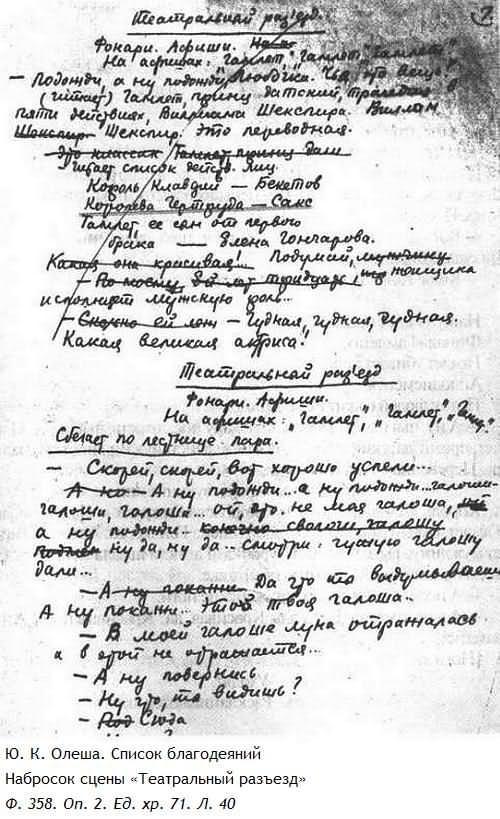 Театральный раз'езд.
2
Фонари. Афиши.
На афишах: "Гамлет", "Гамлет", "Гамлет"
— Подожди, а ну подожди,
(читает) Гамлет, принц датский, трагедия в
пяти действиях, Вилльяма Шекспира. Виллам
Шекспир Шекспир. Это переводная.
— Это классик Гамлет, принц дат
Читает список действ. лиц.
Король Клавдий — Бекетов
Королева Гертруда — Сакс
Гамлет, ее сын от первого
брака — Елена Гончарова.
Какая она красивая!.. Подумай, мужчину
— По моему ей лет тридцать, женщина
исполняет мужскую роль..
— Сколько ей лет — Чудная, чудная, чудная.
Какая великая актриса.
Театральный раз'езд
Фонари. Афиши.
На афишах: "Гамлет", "Гамлет",
Сбегает по лестнице пара.
— Скорей, скорей, вот хорошо успели...
— А ну — А ну подожди.. а ну подожди.. галоши-
галоши, галоша... ой, это не моя галоша,
а ну подожди.. конечно сволочи, галошу
ну да, ну да.. смотри: чужую галошу
дали...
— А ну покажи Да что ты выдумываешь
А ну покажи.. Это твоя галоша..
— В моей галоше луна отражалась
а в этой не отражается...
— А ну повернись
— Ну что, ты видишь?
— Под Сюда
Ю. К. Олеша. Список благодеяний
Набросок сцены «Театральный разъезд»
Ф. 358. Оп. 2. Ед. хр. 71. Л. 40